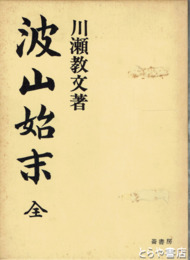 川瀬教文著
波山始末 全
とらや書店